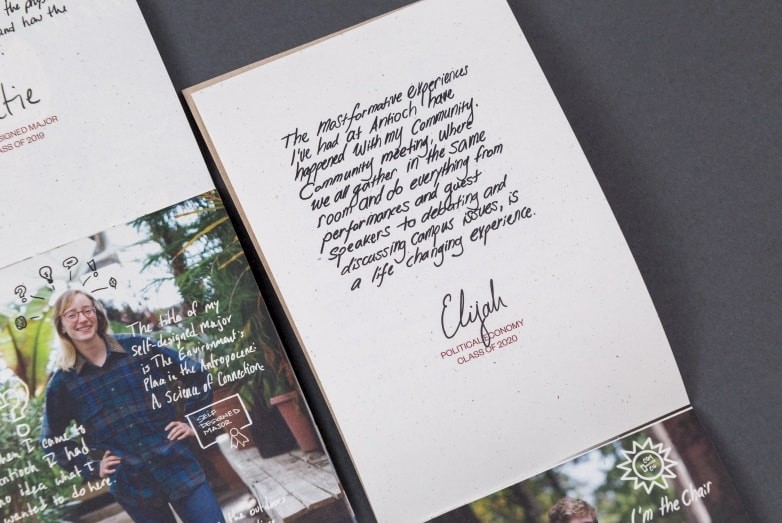 the phys
and how the
tie
SIGNED MAJOR
CLASS OF 2019
The most formative experiences
I've had at Antioch have
happened with my community.
Community meeting, where
we all gather in the same
room and do everything from
performances and guest
speakers to debating and
discussing campus issues, is
a life changing experience.
Elijah
POLITICAL ECONOMY
CLASS OF 2020
The title of my
self-designed major
is The Environment's
Place in the Antropocene:
A Science of Connection.
SELF
DESIGNED
MAJOR
when I came to
Antioch I had
no idea what I
wanted to do here.
the outdoors
I'm the Chair